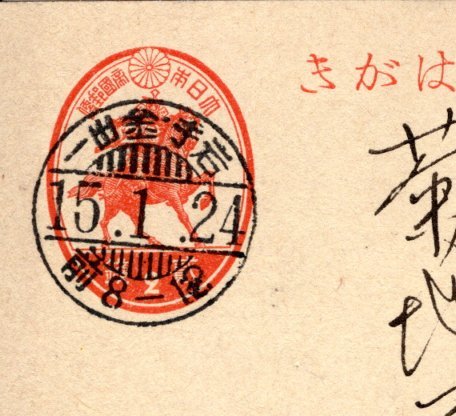 はがき
大日本帝國郵便
岩手・金田一
15.1.24
前8-12
菊
地